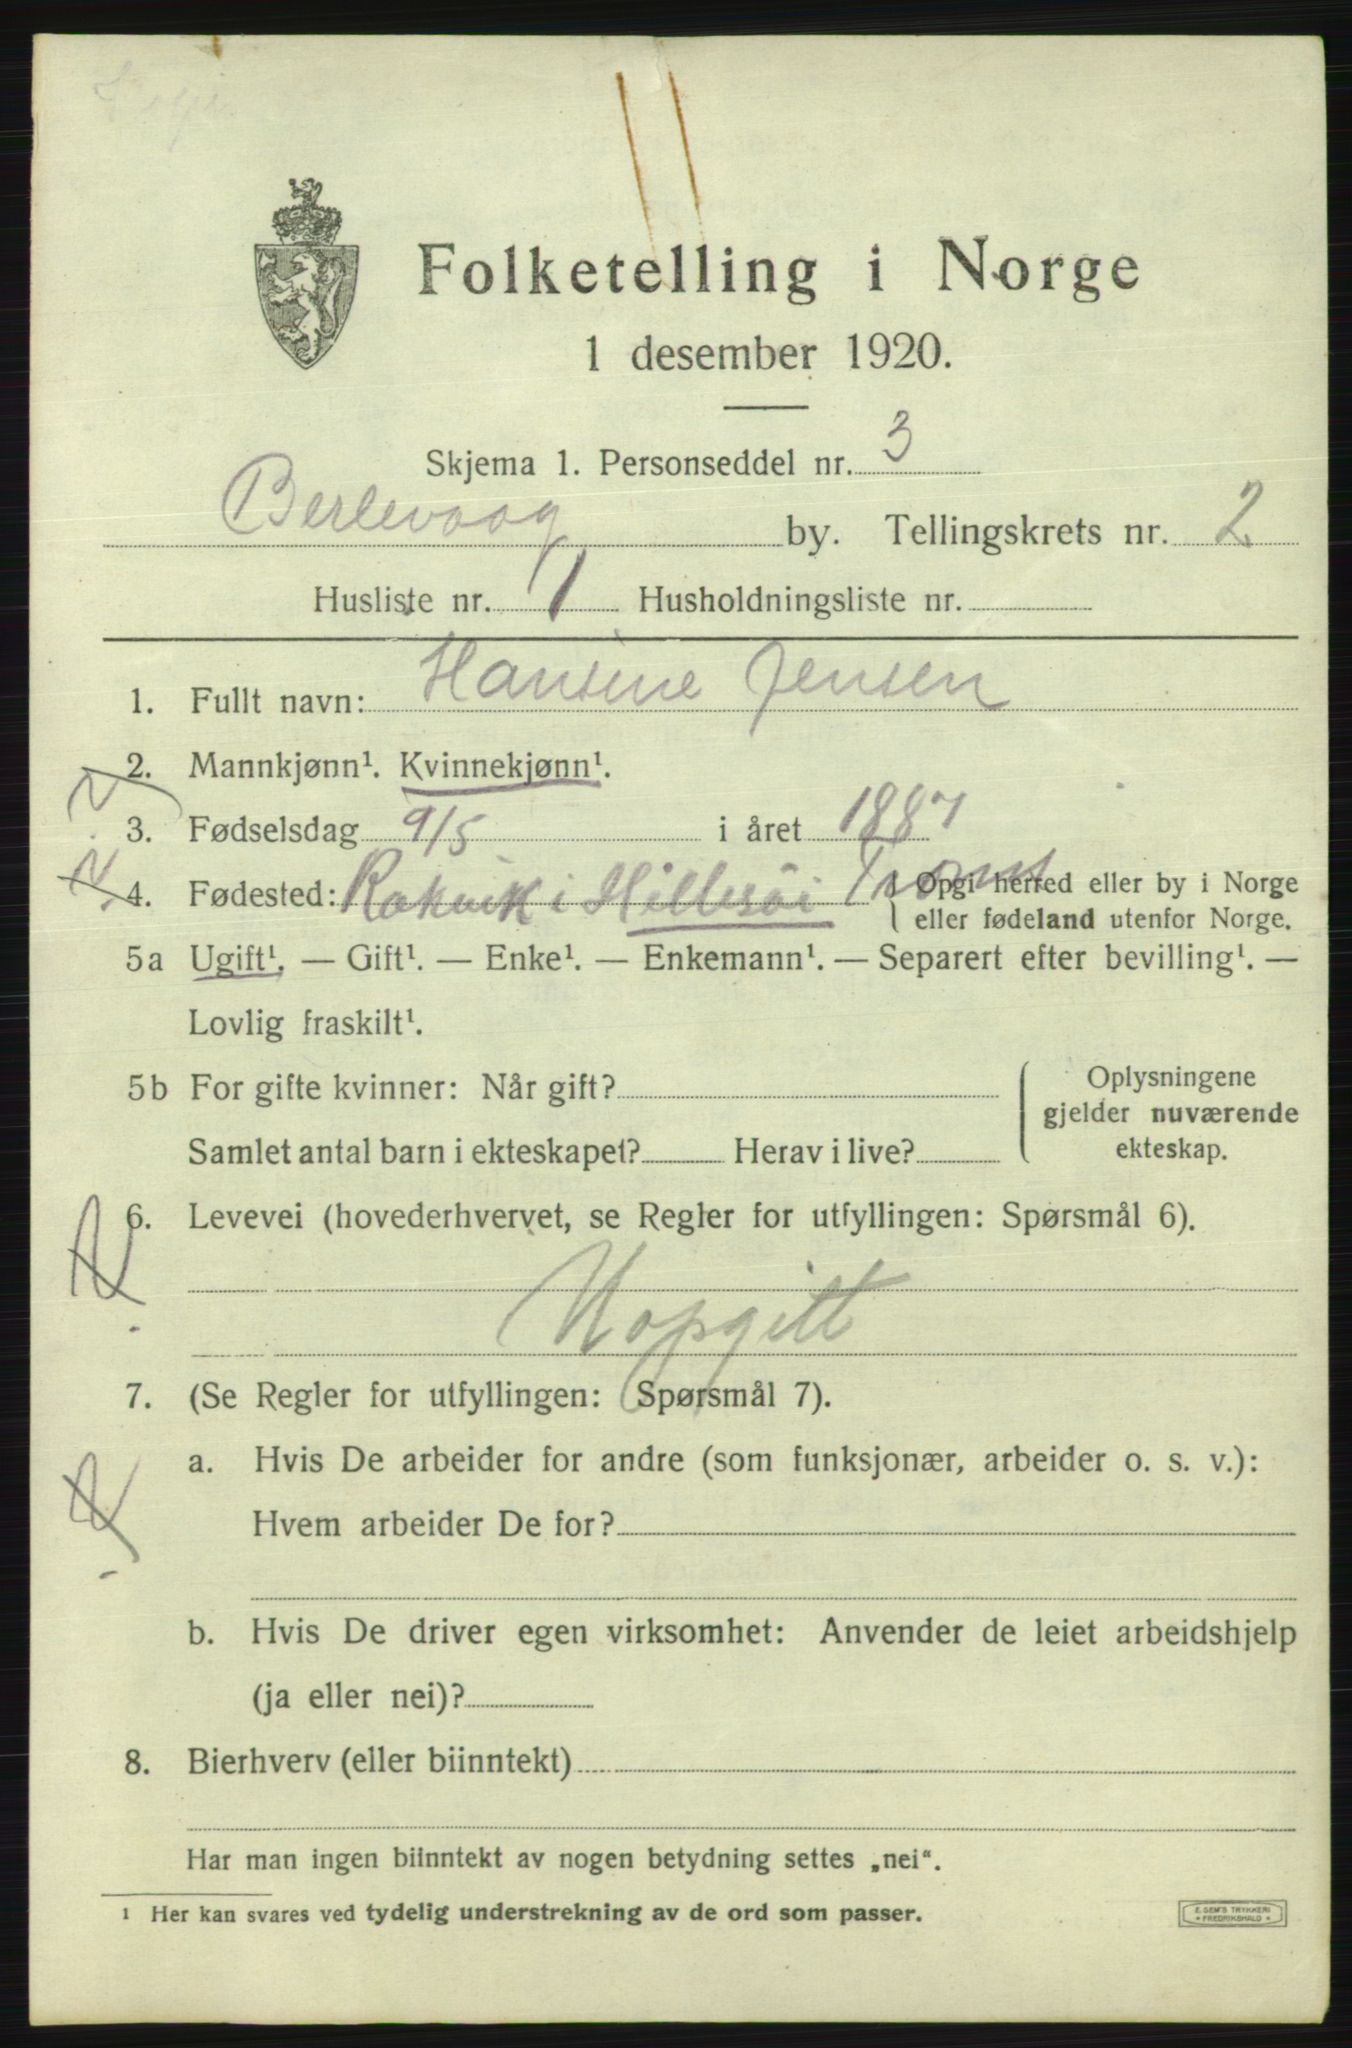 Folketelling i Norge
1 desember 1920.
Skjema 1. Personseddel nr. 3
Berlevaag by. Tellingskrets nr. 2
Husliste nr. 1 Husholdningsliste nr.
1. Fullt navn: Hansine Jensen
2. Mannkjønn¹. Kvinnekjønn¹.
3. Fødselsdag 9/5 i året 1887
4. Fødested: Rakvik i Hillesöi Troms { Opgi herred eller by i Norge
eller fødeland utenfor Norge.
5a Ugift¹. — Gift¹. — Enke¹. — Enkemann¹. — Separert efter bevilling¹. —
Lovlig fraskilt¹.
5b For gifte kvinner: Når gift?
Samlet antal barn i ekteskapet? Herav i live?
{ Oplysningene
gjelder nuværende
ekteskap.
6. Levevei (hovederhvervet, se Regler for utfyllingen: Spørsmål 6).
Uopgitt
7. (Se Regler for utfyllingen: Spørsmål 7).
a. Hvis De arbeider for andre (som funksjonær, arbeider o. s. v.):
Hvem arbeider De for?
b. Hvis De driver egen virksomhet: Anvender de leiet arbeidshjelp
(ja eller nei)?
8. Bierhverv (eller biinntekt)
Har man ingen biinntekt av nogen betydning settes „nei“.
¹ Her kan svares ved tydelig understrekning av de ord som passer.
E. SEM'S TRYKKERI
FREDRIKSHALD